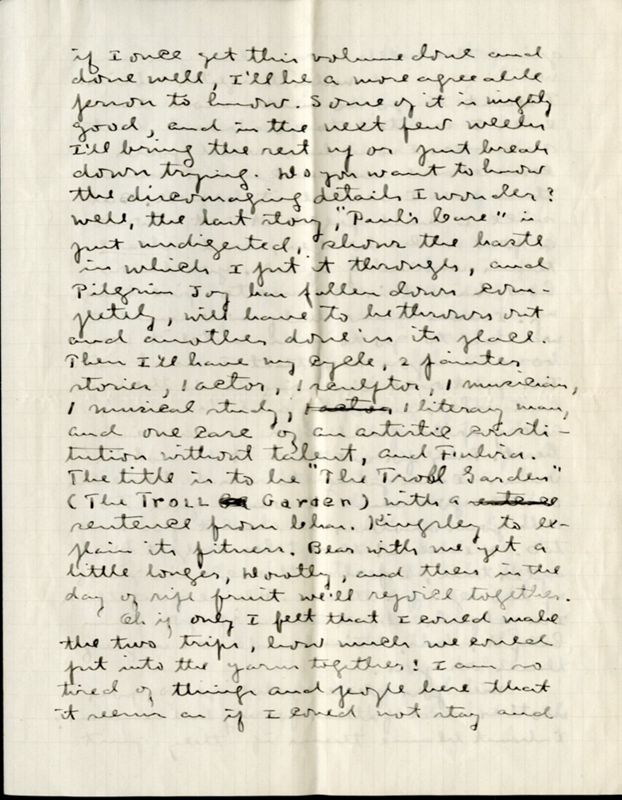 if I once get this volume done and
done well, I'll be a more agreeable
person to know. Some of it is mighty
good, and in the next few weeks
I'll bring the rest up or just break
down trying. Do you want to know
the discouraging details I wonder?
Well, the last story, "Paul's Case" is
just undigested, shows the haste
in which I put it through, and
Pilgrim Joy has fallen down com-
pletely, will have to be thrown out
and another done in its place.
Then I'll have my cycle, 2 painter
stories, 1 actor, 1 sculptor, 1 musician,
1 musical study, 1 actor 1 literary man,
and one case of an artistic consti-
tution without talent, and Fulvia.
The title is to be "The Troll Garden"
(The TROLL Garden) with a sentence
sentence from Chas. Kingsley to ex-
plain its fitness. Bear with me yet a
little longer, Dorothy, and then in the
day of ripe fruit we'll rejoice together.
Oh if only I felt that I could make
the two trips, how much we could
put into the yarns together! I am so
tired of things and people here that
it seems as if I could not stay and